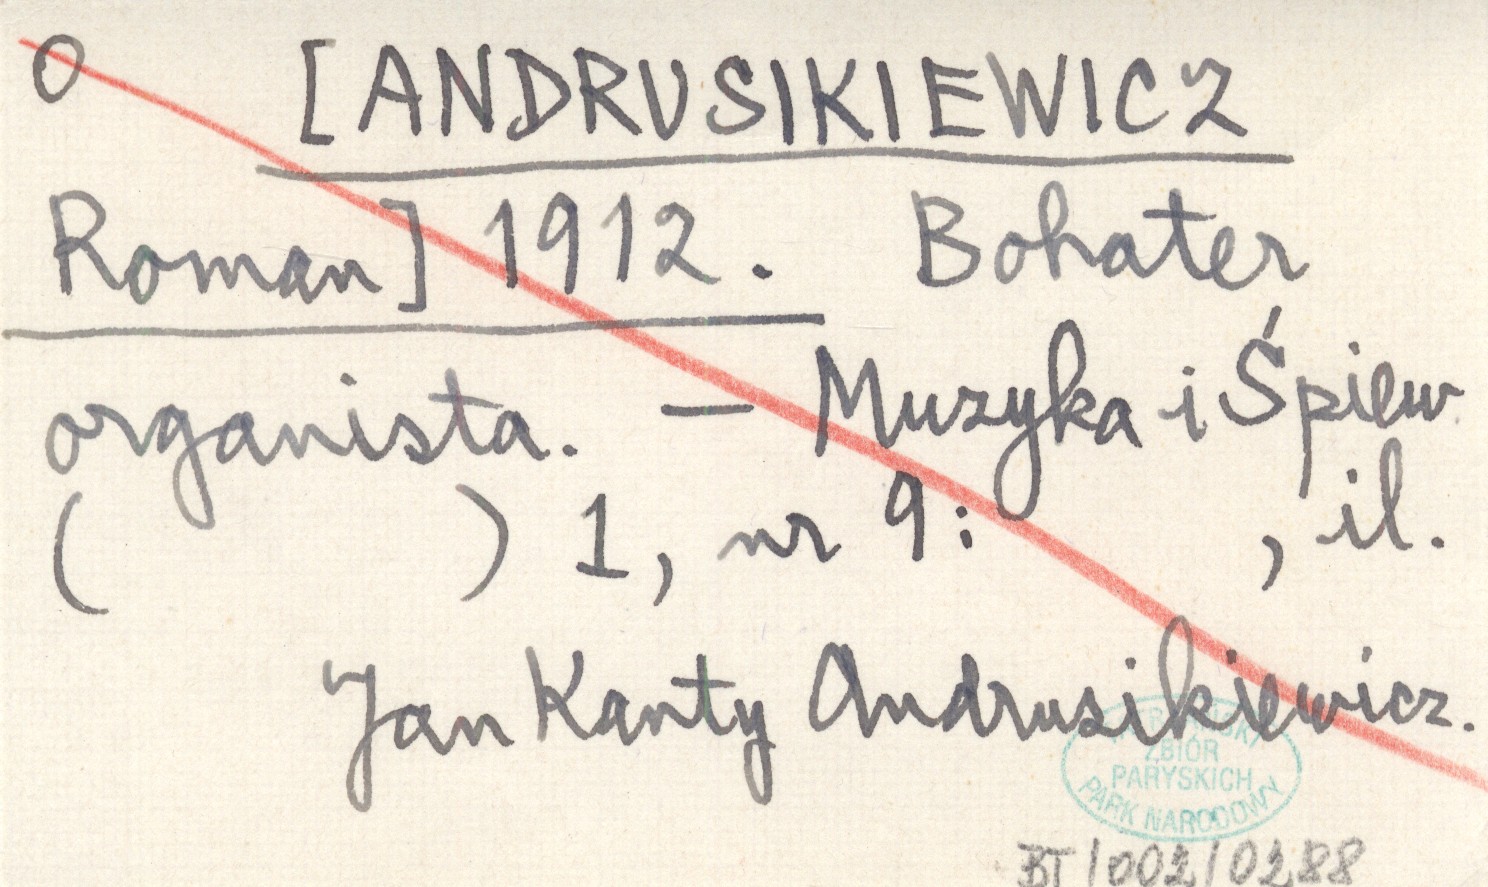 O [ANDRUSIKIEWICZ
Roman] 1912. Bohater
organista. — Muzyka i Śpiew
( ) 1, nr 9: , il.
Jan Kanty Andrusikiewicz.
ZBIÓR
PARYSKICH
PARK NARODOWY
BT/002/0288